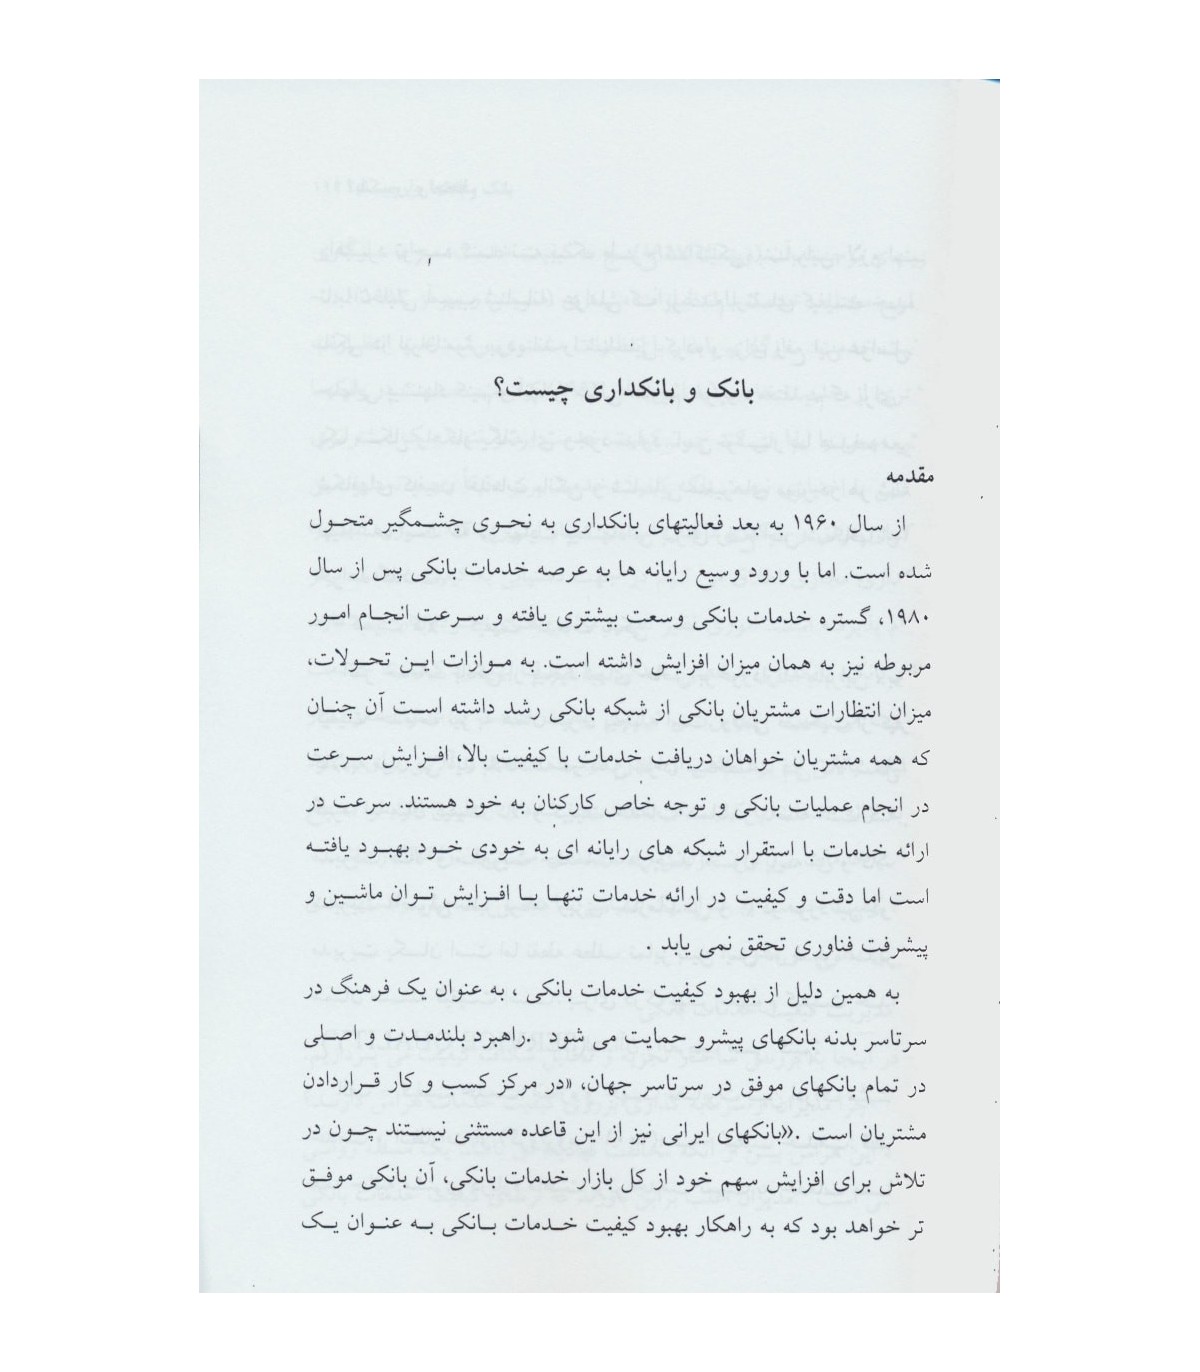 بانک و بانکداری چیست؟
مقدمه
از سال ۱۹۶۰ به بعد فعالیتهای بانکداری به نحوی چشمگیر متحول
شده است. اما با ورود وسیع رایانه ها به عرصه خدمات بانکی پس از سال
۱۹۸۰، گستره خدمات بانکی وسعت بیشتری یافته و سرعت انجام امور
مربوطه نیز به همان میزان افزایش داشته است. به موازات این تحولات،
میزان انتظارات مشتریان بانکی از شبکه بانکی رشد داشته است آن چنان
که همه مشتریان خواهان دریافت خدمات با کیفیت بالا، افزایش سرعت
در انجام عملیات بانکی و توجه خاص کارکنان به خود هستند. سرعت در
ارائه خدمات با استقرار شبکه های رایانه ای به خودی خود بهبود یافته
است اما دقت و کیفیت در ارائه خدمات تنها با افزایش توان ماشین و
پیشرفت فناوری تحقق نمی یابد .
به همین دلیل از بهبود کیفیت خدمات بانکی ، به عنوان یک فرهنگ در
سرتاسر بدنه بانکهای پیشرو حمایت می شود .راهبرد بلندمدت و اصلی
در تمام بانکهای موفق در سرتاسر جهان، «در مرکز کسب و کار قراردادن
مشتریان است .«بانکهای ایرانی نیز از این قاعده مستثنی نیستند چون در
تلاش برای افزایش سهم خود از کل بازار خدمات بانکی، آن بانکی موفق
تر خواهد بود که به راهکار بهبود کیفیت خدمات بانکی به عنوان یک